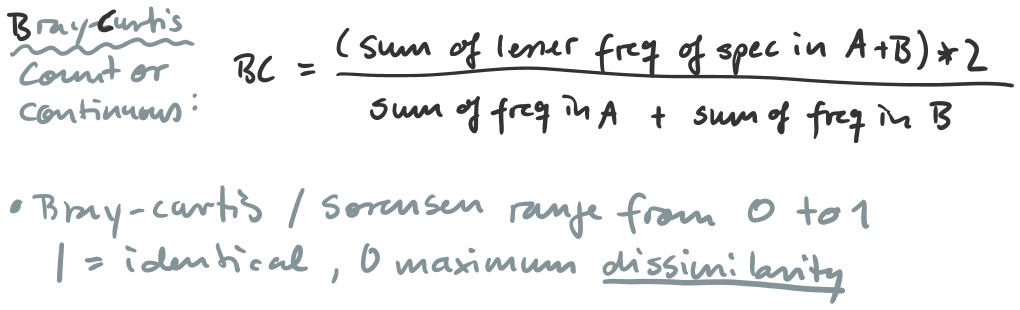 Bray-Curtis
Count or
continuous:
BC = (sum of lesser freq of spec in A+B) * 2
sum of freq in A + sum of freq in B
• Bray-curtis / Sorensen range from 0 to 1
1 = identical, 0 maximum dissimilarity